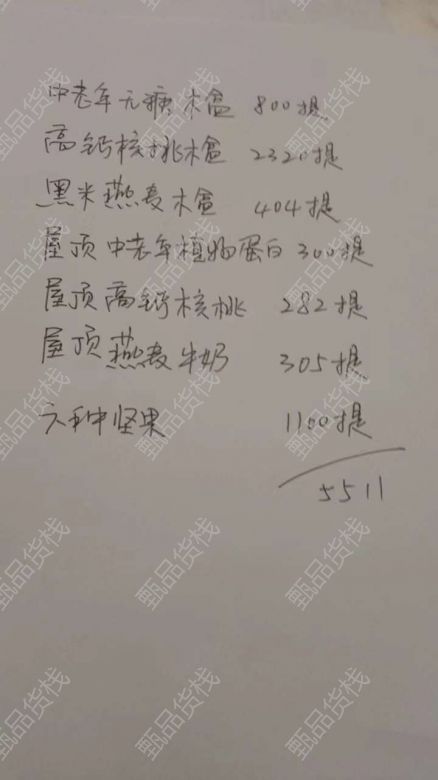 中老年无糖木盒 800提
高钙核桃木盒 2320提
黑米燕麦木盒 404提
屋顶中老年植物蛋白 300提
屋顶高钙核桃 282提
屋顶燕麦牛奶 305提
六种坚果 1100提
5511
甄品货栈